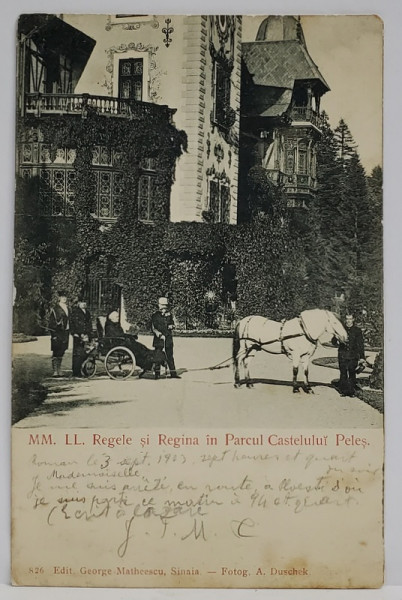 MM. LL. Regele și Regina în Parcul Castelului Peleș.
Roman le 3 sept. 1903. sept heures et quart du soir
Mademoiselle,
Je me suis arrêté en route, à
je suis parti ce matin à
(Ecrit à la gare
826 Edit. George Matheescu, Sinaia. — Fotog. A. Duschek.